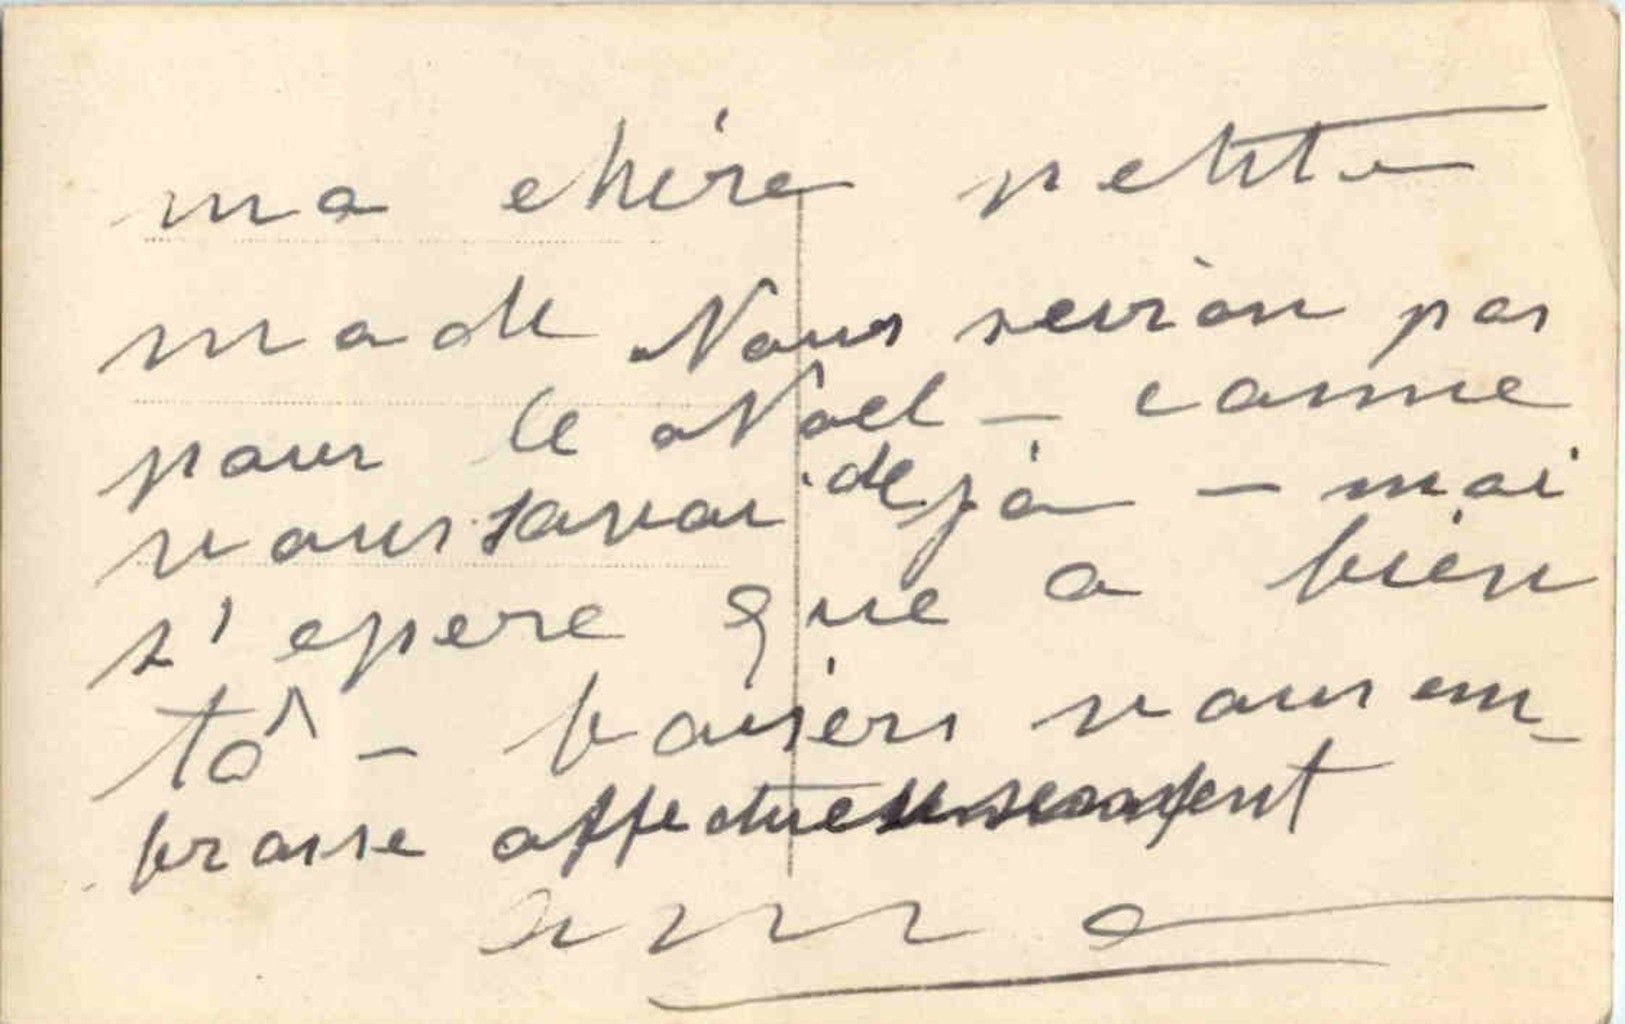 ma chère petite
made Nous revion pas
pour le Noel - comme
vous savai déjà - mai
s'epere que a bien
tô^ - baisers vous em-
brasse affectueusement